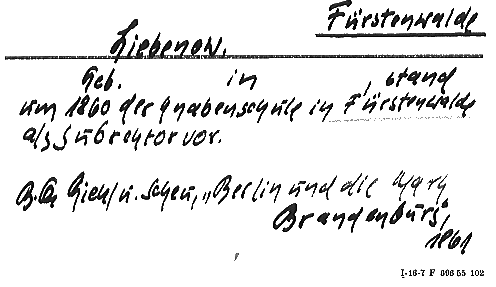 Fürstenwalde
Liebenow.
Geb. in , stand
um 1860 der Knabenschule in Fürstenwalde
als Subrektor vor.
Riehl u. Scheu, „Berlin und die Mark
Brandenburg",
1861
I-16-7 F 596 55 102